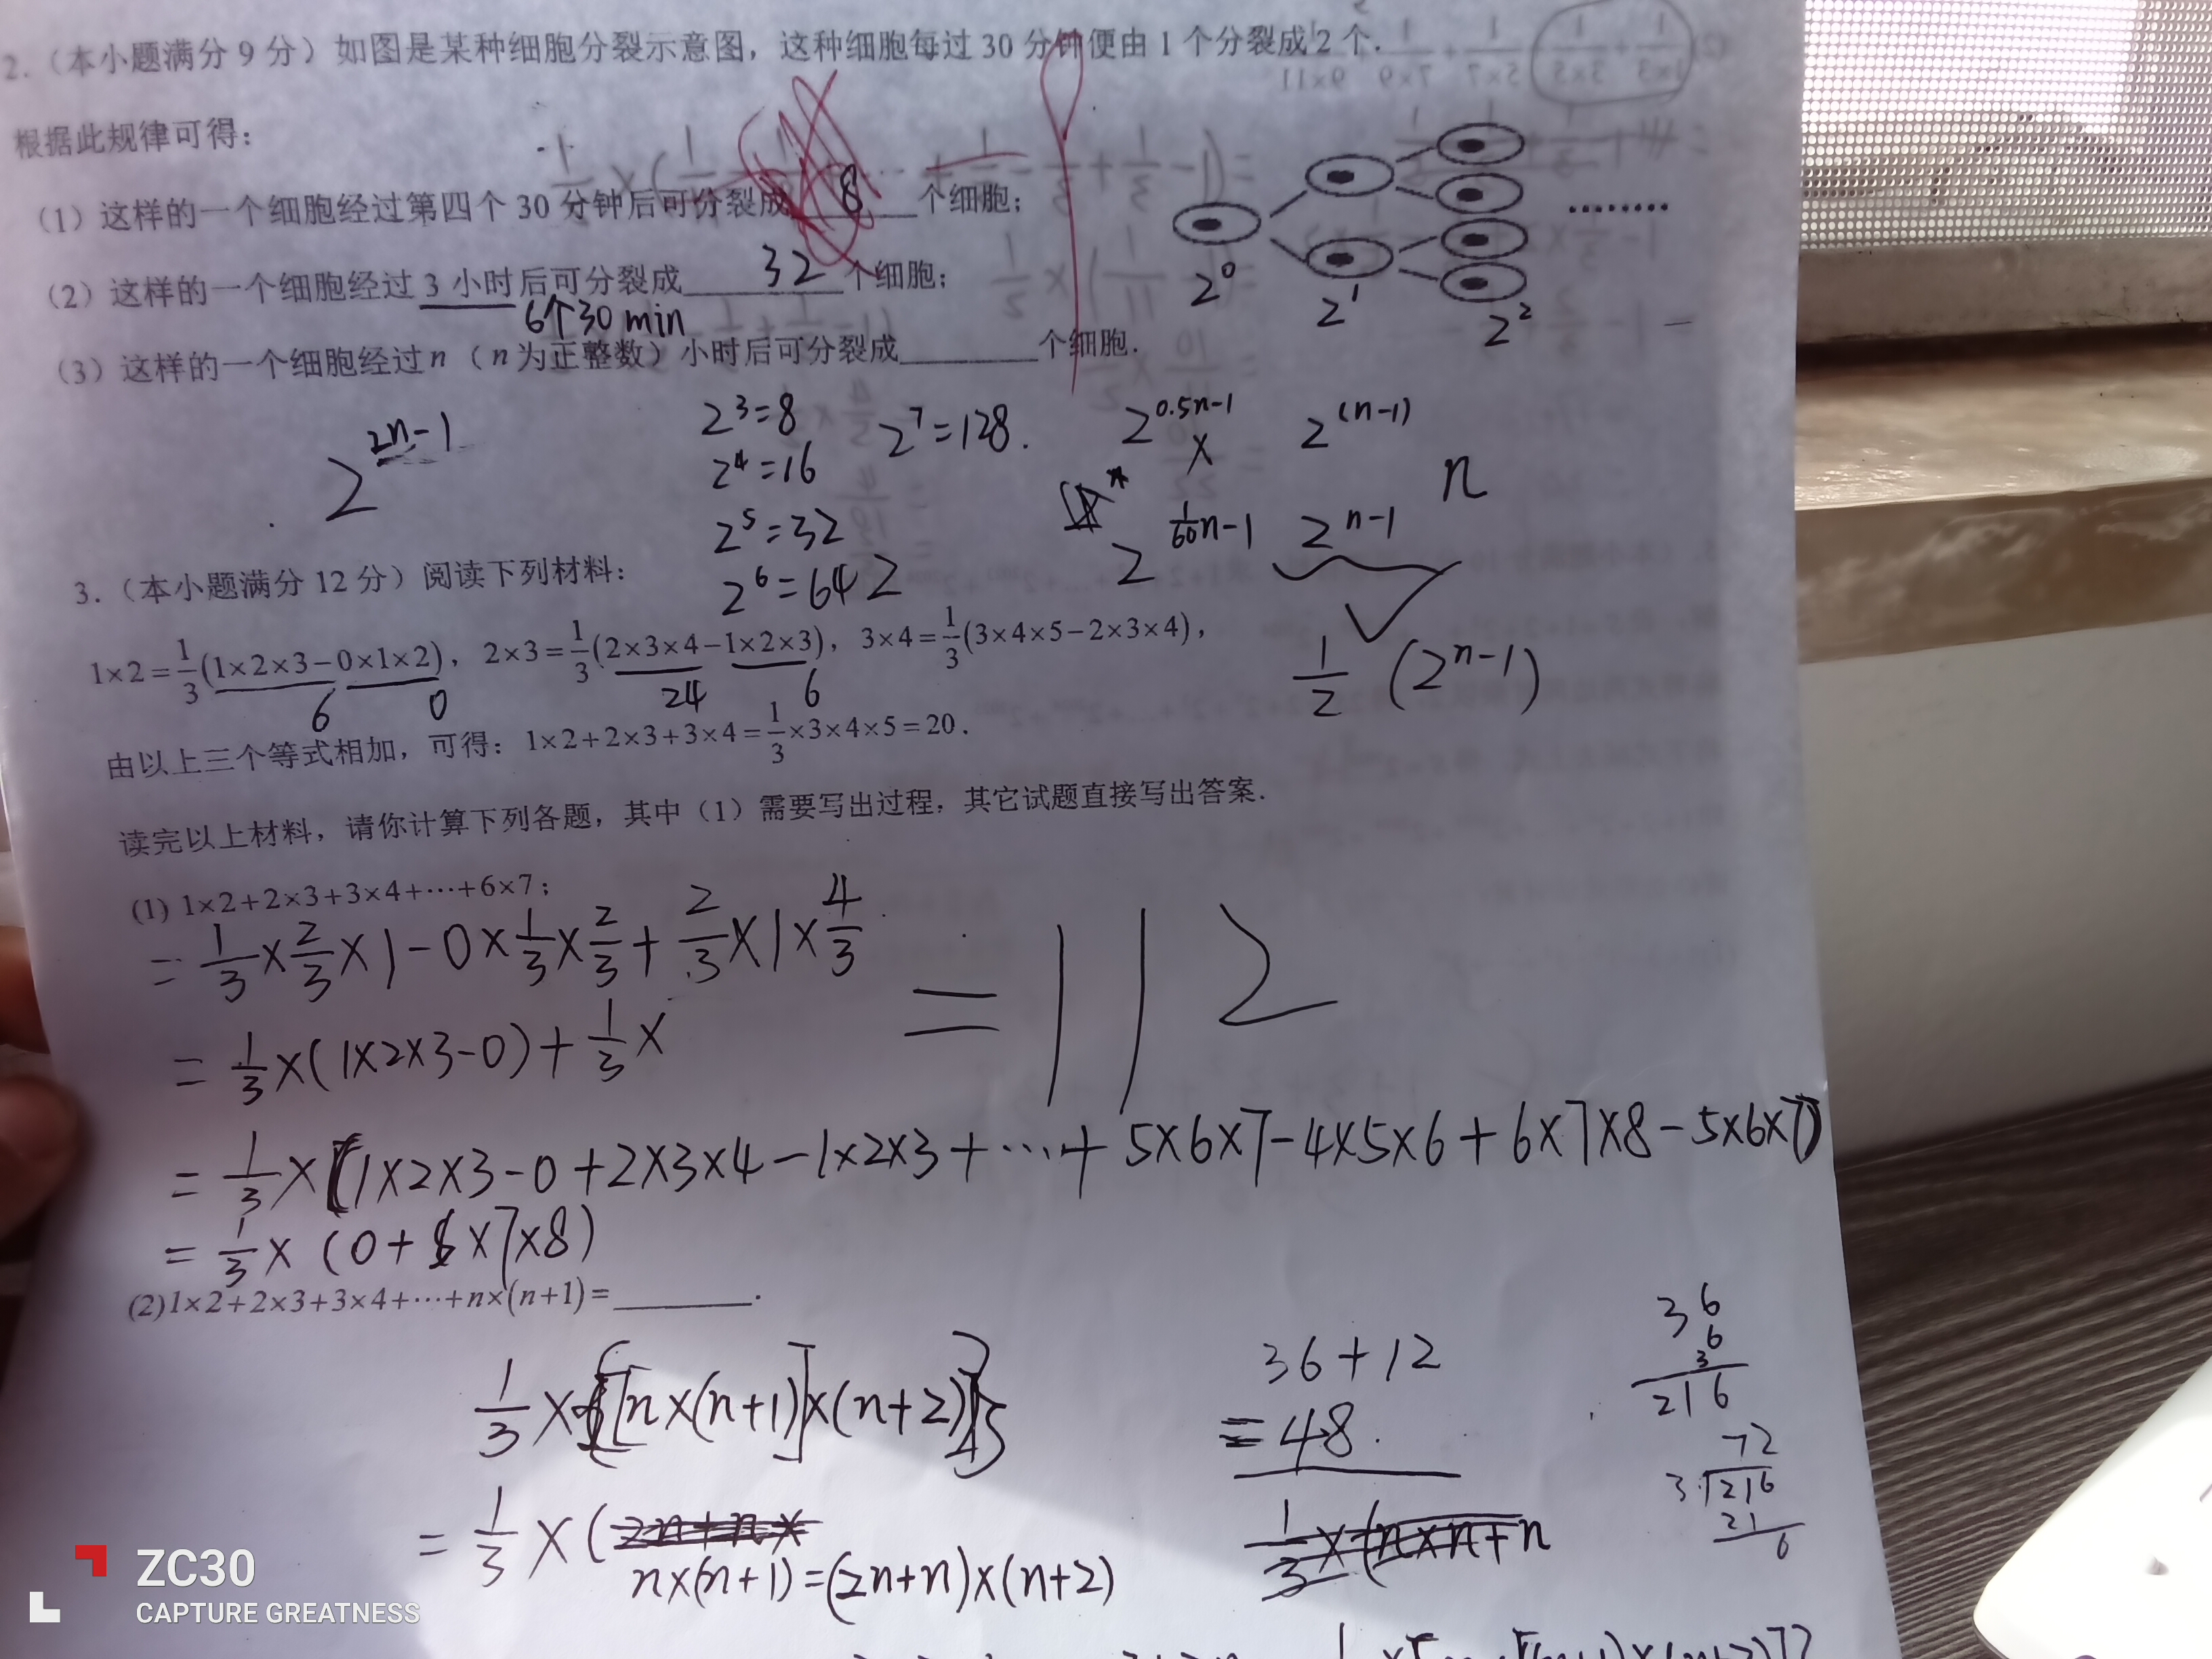 2.（本小题满分 9 分）如图是某种细胞分裂示意图，这种细胞每过 30 分钟便由 1 个分裂成 2 个.
根据此规律可得：
（1）这样的一个细胞经过第四个 30 分钟后可分裂成 8 个细胞；
（2）这样的一个细胞经过 3 小时后可分裂成 32 个细胞；
6个30 min
（3）这样的一个细胞经过 n（n 为正整数）小时后可分裂成________个细胞.
2⁰
2¹
2²
........
2^{2n-1}
2³=8
2⁴=16
2⁵=32
2⁶=64
2⁷=128.
2^{0.5n-1}
×
2^{(n-1)}
n
2^{\frac{1}{60}n-1}
2^{n-1}
2
\frac{1}{2} (2^{n-1})
3.（本小题满分 12 分）阅读下列材料：
1×2=\frac{1}{3}(1×2×3-0×1×2)，2×3=\frac{1}{3}(2×3×4-1×2×3)，3×4=\frac{1}{3}(3×4×5-2×3×4)，
6 0 24 6
由以上三个等式相加，可得：1×2+2×3+3×4=\frac{1}{3}×3×4×5=20.
读完以上材料，请你计算下列各题，其中（1）需要写出过程，其它试题直接写出答案.
(1) 1×2+2×3+3×4+⋯+6×7；
=\frac{1}{3}×\frac{2}{3}×1-0×\frac{1}{3}×\frac{2}{3}+\frac{2}{3}×1×\frac{4}{3}
=\frac{1}{3}×(1×2×3-0)+\frac{1}{3}×
=112
=\frac{1}{3}×(1×2×3-0+2×3×4-1×2×3+⋯+5×6×7-4×5×6+6×7×8-5×6×7)
=\frac{1}{3}×(0+6×7×8)
(2)1×2+2×3+3×4+⋯+n×(n+1)=________.
\frac{1}{3}×{[n×(n+1)]×(n+2)}
36+12
=48.
36
6
3
216
72
3 216
21
6
=\frac{1}{3}×(
n×(n+1)=(2n+n)×(n+2)
ZC30
CAPTURE GREATNESS